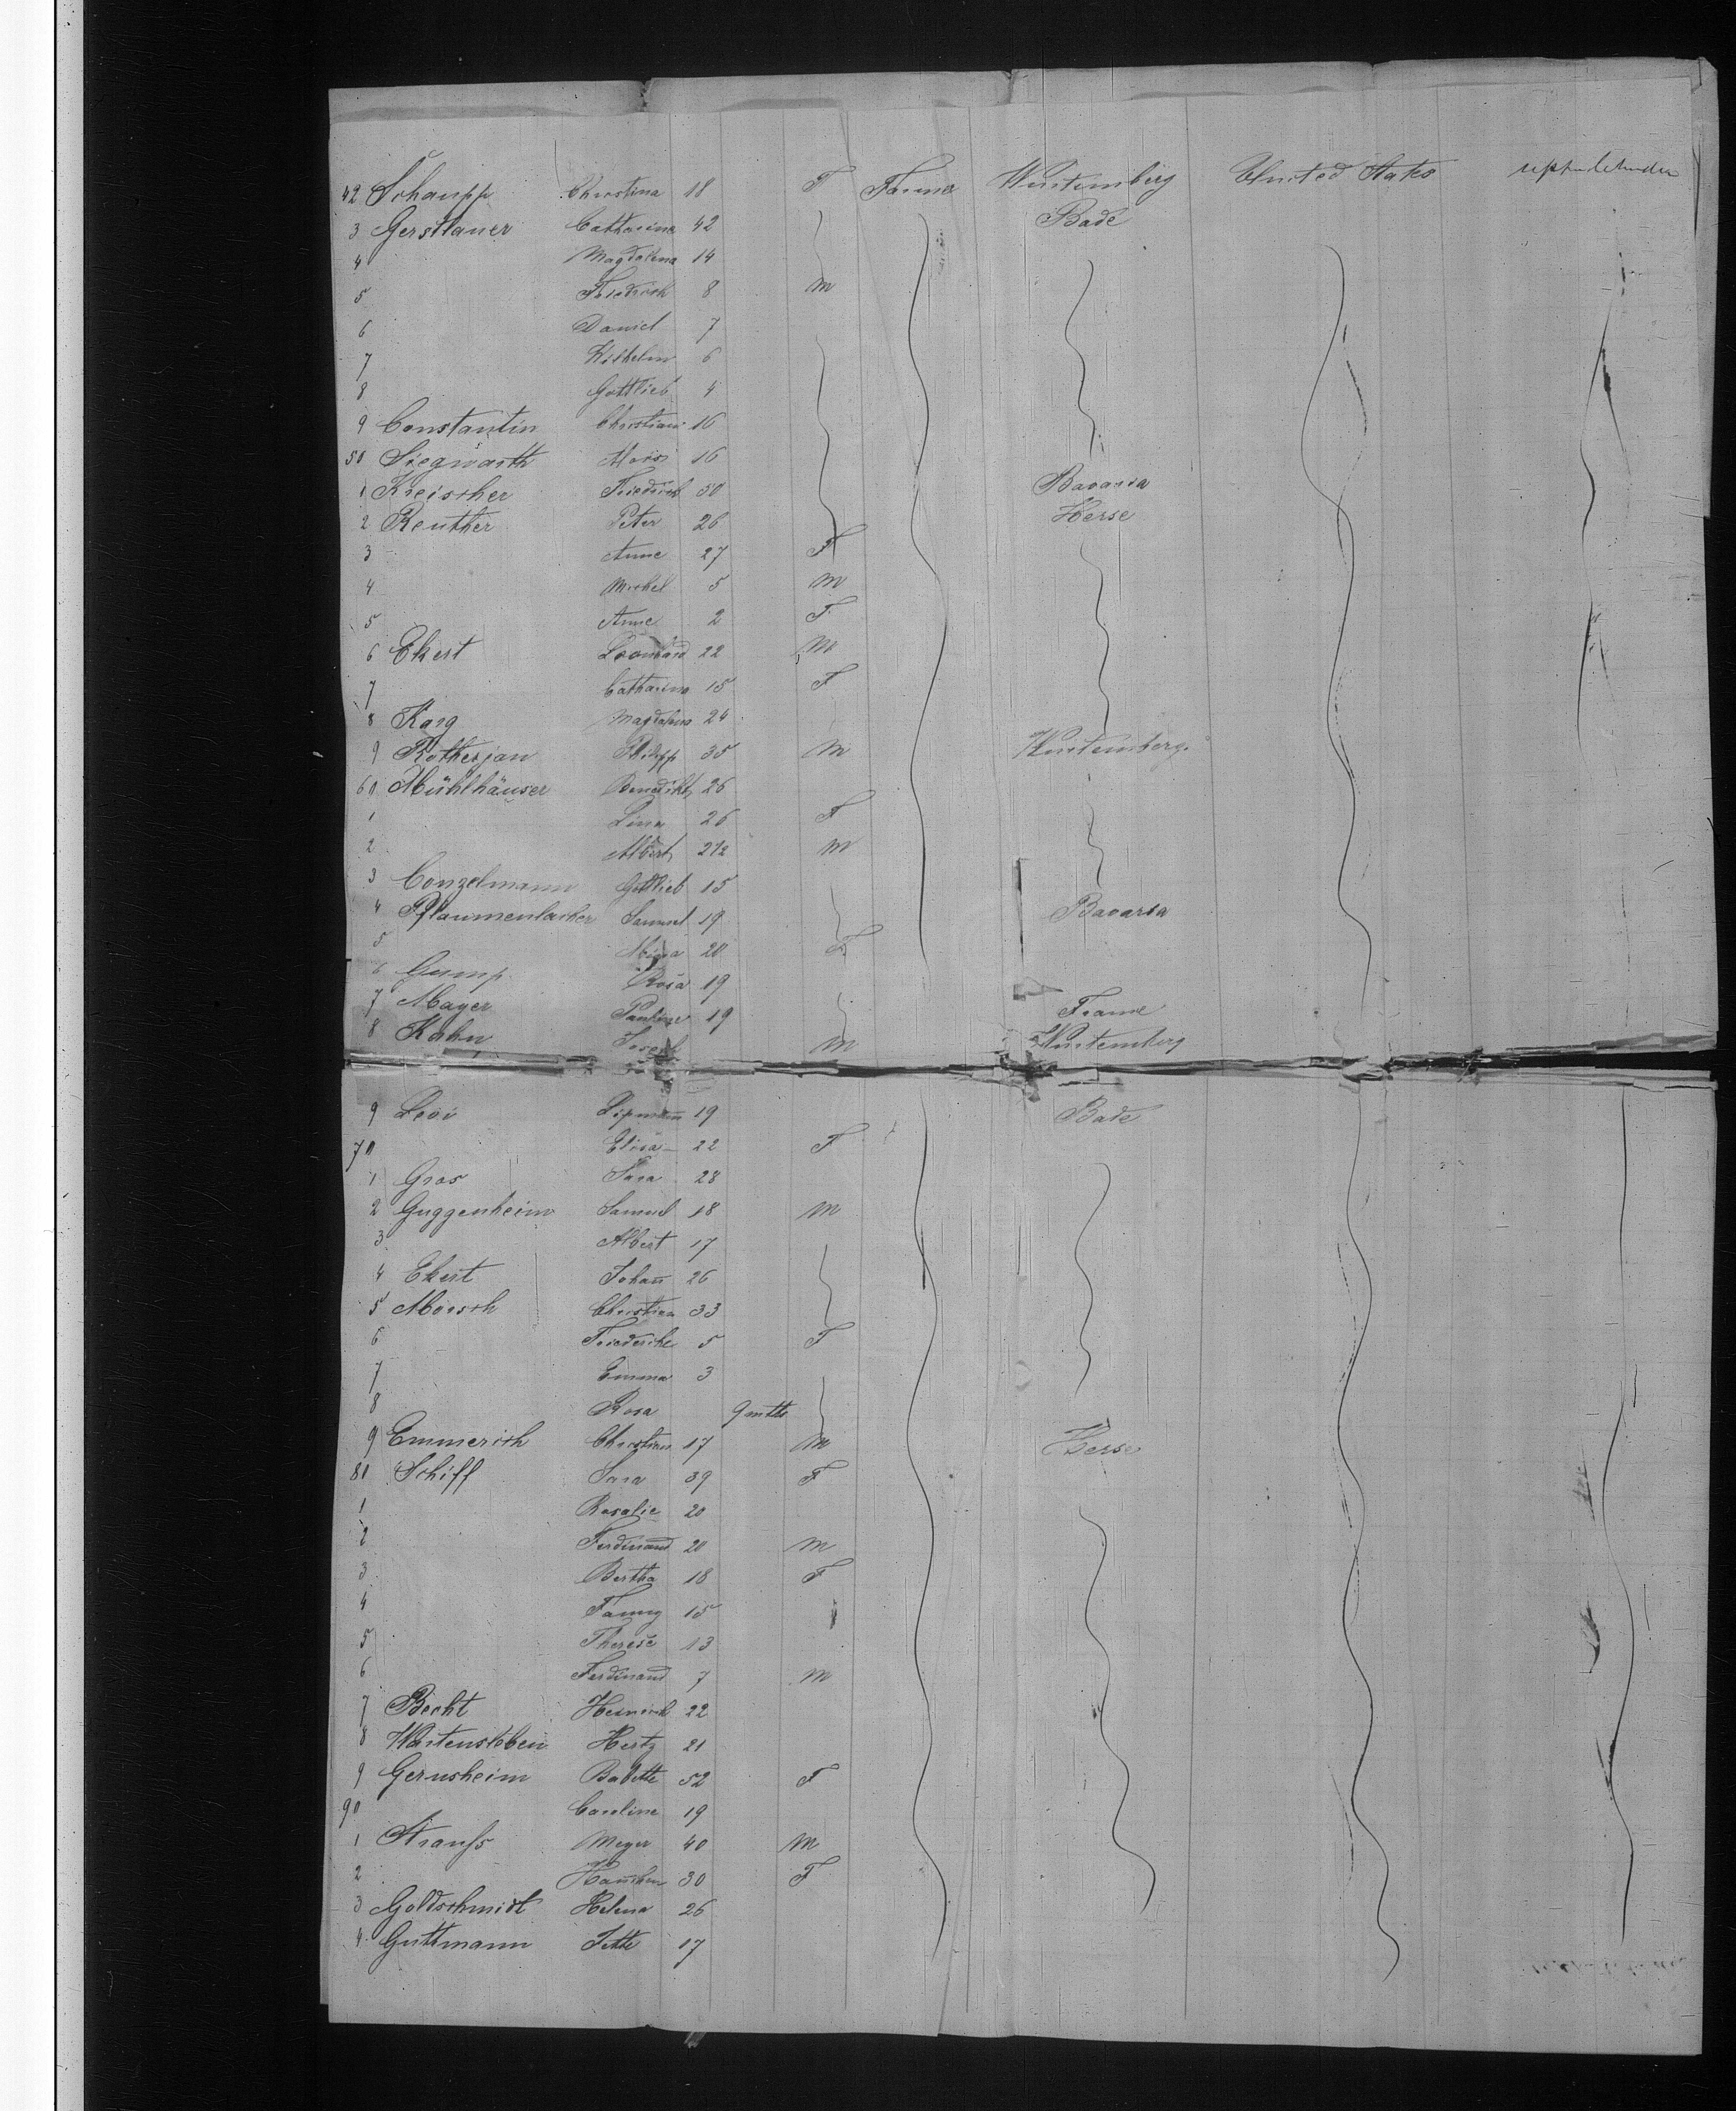 42 Schaupp Christina 18 F Farmer Wurtemberg United States
3 Gerstlauer Catharina 42 Bade
4 Magdalena 14
5 Friedrich 8 m
6 Daniel 7
7 Wilhelm 6
8 Gottlieb 4
9 Constantin Christian 16
50 Siegwarth 16
1 Kreischer Friedrich 50 Bavaria
2 Reuther Peter 26 Hesse
3 Anne 27 F
4 Michel 5 m
5 Anne 2 F
6 Ekert Leonhard 22 m
7 Catharina 15 F
8 Karg Magdalena 24
9 Rotherjan Philipp 35 m Wurtemberg
60 Mühlhäuser Benedikt 26
1 Lina 26 F
2 Albert 2 1/2 m
3 Conzelmann Gottlieb 15
4 Pflaumenlacher Samuel 19 Bavaria
5 20 F
6 Gump Rosa 19
7 Mayer Pauline 19 France
8 Kahn Joseph m Wurtemberg
9 Levi Lipmann 19 Bade
70 Elisa 22 F
1 Gros Sara 28
2 Guggenheim Samuel 18 m
3 Albert 17
4 Ekert Johan̅ 26
5 Morsch Christian 33
6 Friedericke 5 F
7 Emma 3
8 Rosa 9 mths
9 Emmerich Christian 17 m Hesse
80 Schiff Sara 39 F
1 Rosalie 20
2 Ferdinand 20 m
3 Bertha 18 F
4 Fanny 15
5 Therese 13
6 Ferdinand 7 m
7 Becht Heinrich 22
8 Wartensleben Hertz 21
9 Gernsheim Babette 52 F
90 Caroline 19
1 Strauſs Meyer 40 m
2 Han̅chen 30 F
3 Goldschmidt Helena 26
4 Guttmann Jette 17